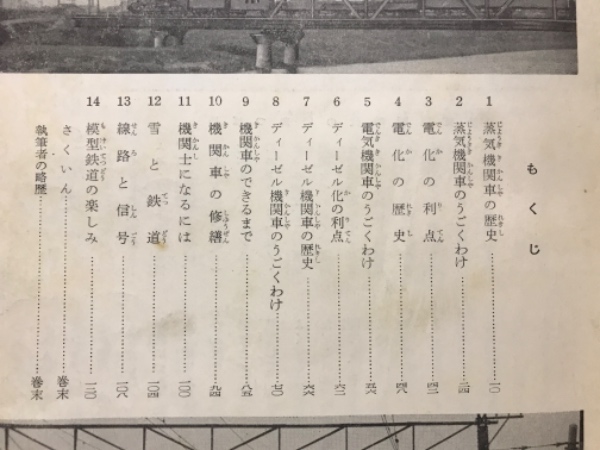 もくじ
1 蒸気機関車の歴史……一〇
2 蒸気機関車のうごくわけ……二四
3 電化の利点……四二
4 電化の歴史……四八
5 電気機関車のうごくわけ……五六
6 ディーゼル化の利点……六二
7 ディーゼル機関車の歴史……六六
8 ディーゼル機関車のうごくわけ……七〇
9 機関車のできるまで……八五
10 機関車の修繕……九四
11 機関士になるには……一〇〇
12 雪と鉄道……一〇四
13 線路と信号……一〇八
14 模型鉄道の楽しみ……一二〇
さくいん……巻末
執筆者の略歴……巻末